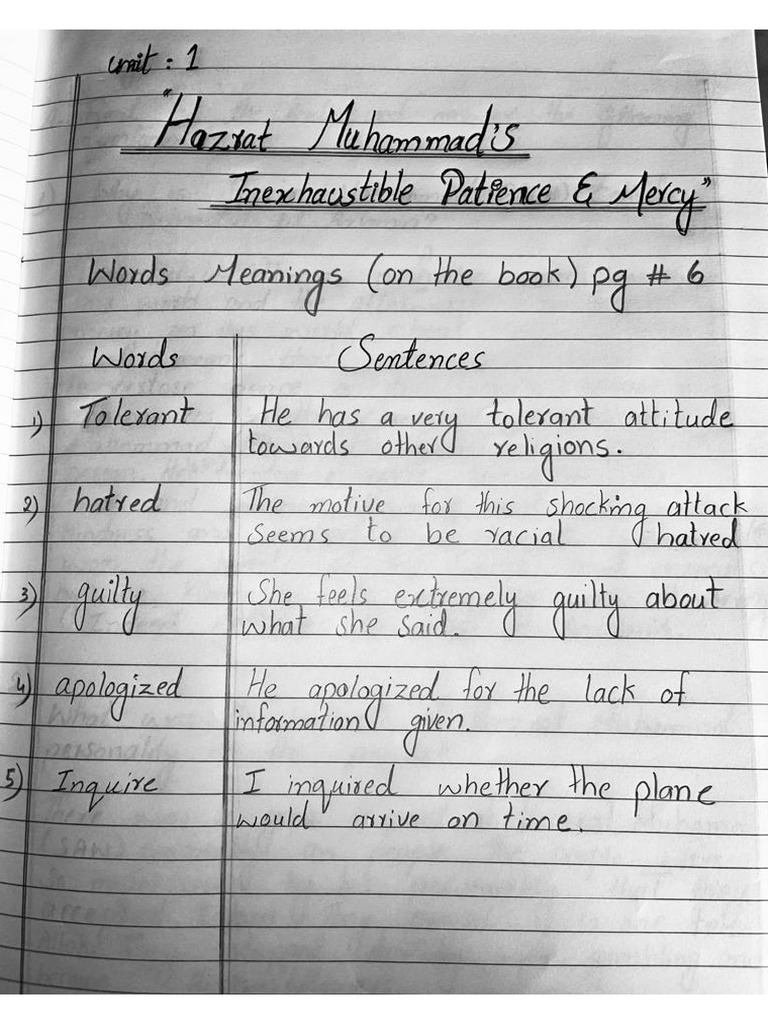 unit : 1
"Hazrat Muhammad's
Inexhaustible Patience & Mercy"
Words Meanings (on the book) pg # 6
Words Sentences
1) Tolerant He has a very tolerant attitude
towards other religions.
2) hatred The motive for this shocking attack
seems to be racial hatred
3) guilty She feels extremely guilty about
what she said.
4) apologized He apologized for the lack of
information given.
5) Inquire I inquired whether the plane
would arrive on time.